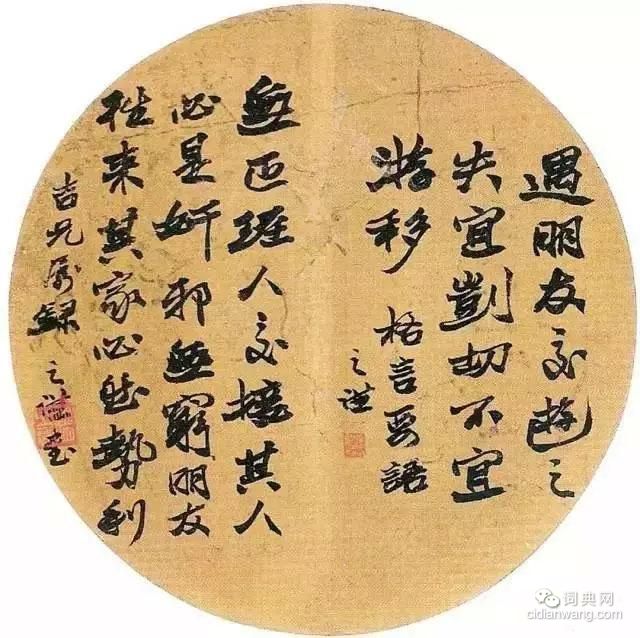 遇朋友交遊之
失宜剴切不宜
游移 格言要語
之謙
無正經人交接其人
必是奸邪無窮朋友
往来其家必然勢利
吉兄属録 之謙書
词典网
cidianwang.com